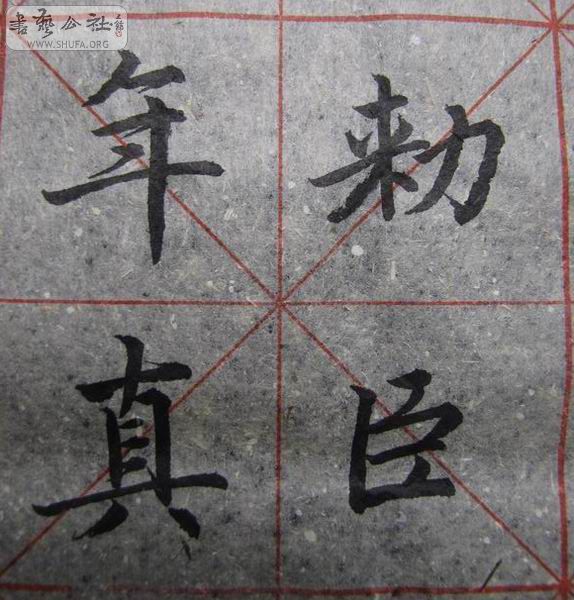 書藝公社
WWW.SHUFA.ORG
勑臣
年真